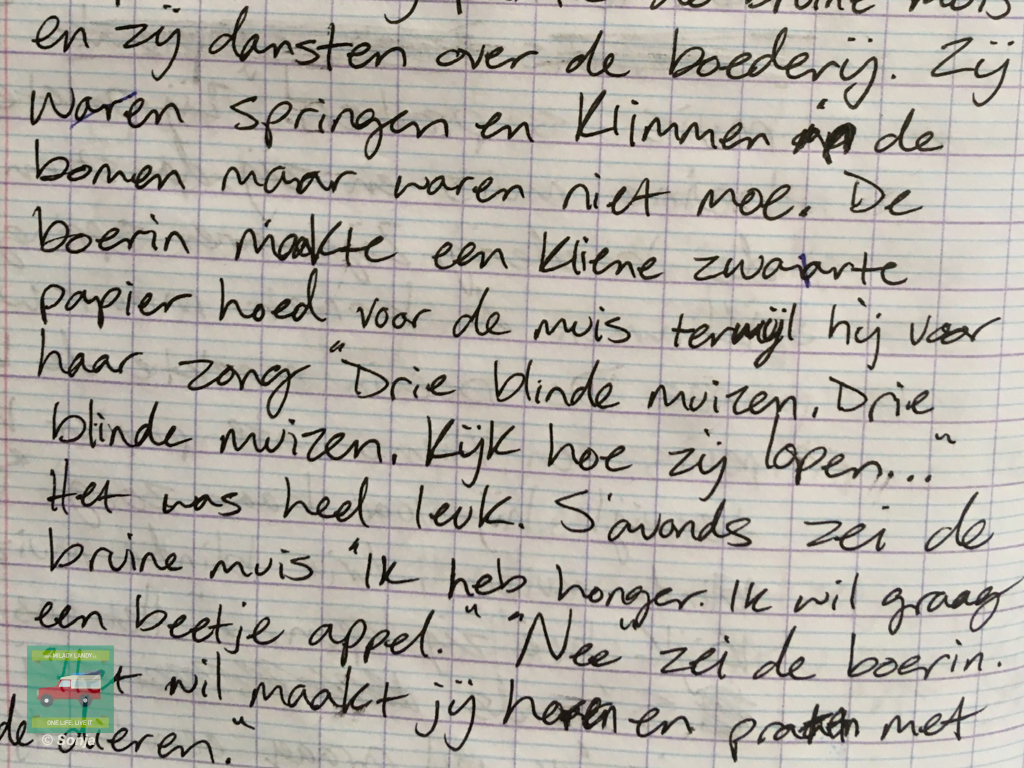 de bruine muis
en zij dansten over de boederij. Zij
waren springen en Klimmen in de
bomen maar waren niet moe. De
boerin maakte een Kliene zwaarte
papier hoed voor de muis terwijl hij voor
haar zong "Drie blinde muizen. Drie
blinde muizen. Kijk hoe zij lopen..."
Het was heel leuk. S'avonds zei de
bruine muis "Ik heb honger. Ik wil graag
een beetje appel." "Nee" zei de boerin.
wil maakt jij horen en praten met
de dieren."
MILADY LANDY
ONE LIFE, LIVE IT
© Sonja